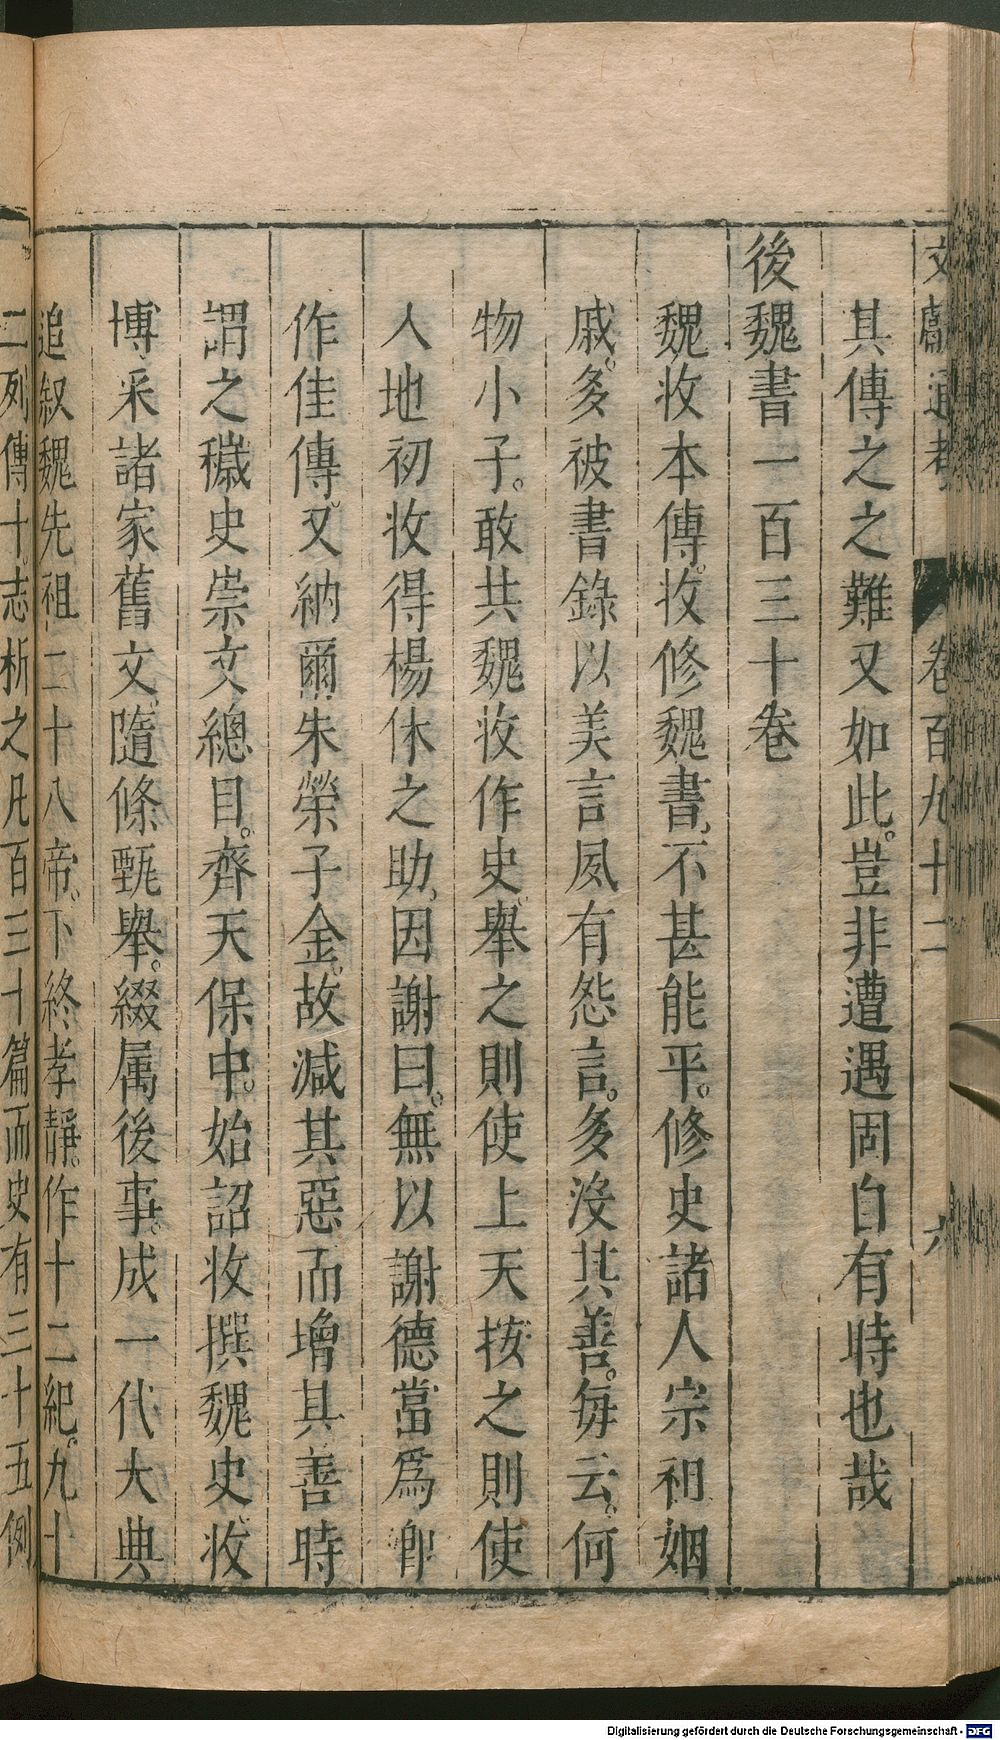 文獻通考 卷百九十二 六
其傳之之難又如此。豈非遭遇固自有時也哉
後魏書一百三十卷
魏收本傳。收修魏書、不甚能平。修史諸人宗祖姻
戚。多被書錄以美言夙有怨言。多沒其善。每云。何
物小子。敢共魏收作史。舉之則使上天按之則使
人地初收得楊休之助、因謝曰。無以謝德當爲卿
作佳傳。又納爾朱榮子金。故減其惡而增其善時
謂之穢史崇文總目。齊天保中。始詔收撰魏史、收
博采諸家舊文。隨條甄舉。綴属後事。成一代大典
追叙魏先祖二十八帝。下終孝靜。作十二紀。九十
二列傳十志析之凡百三十篇而史有三十五例
Digitalisierung gefördert durch die Deutsche Forschungsgemeinschaft - DFG